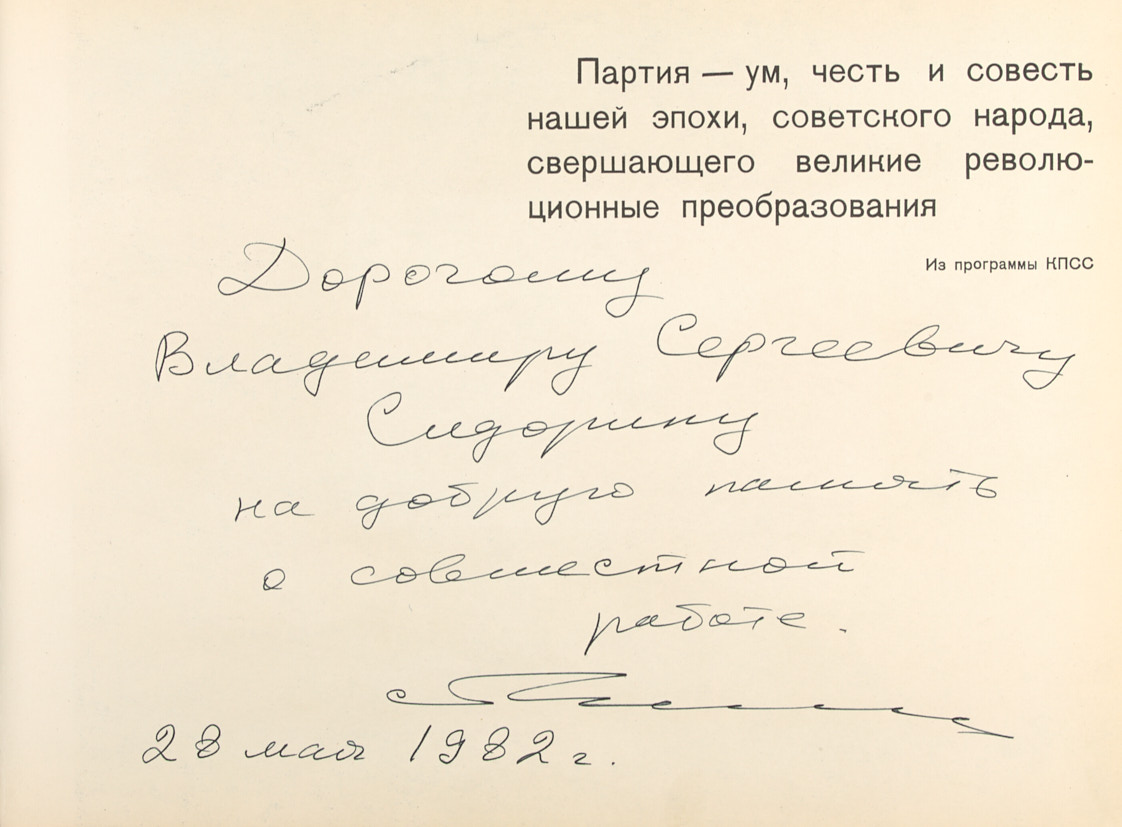 Партия — ум, честь и совесть
нашей эпохи, советского народа,
свершающего великие револю-
ционные преобразования
Из программы КПСС
Дорогому
Владимиру Сергеевичу
Сидорину
на добрую память
о совместной
работе.
28 мая 1982 г.